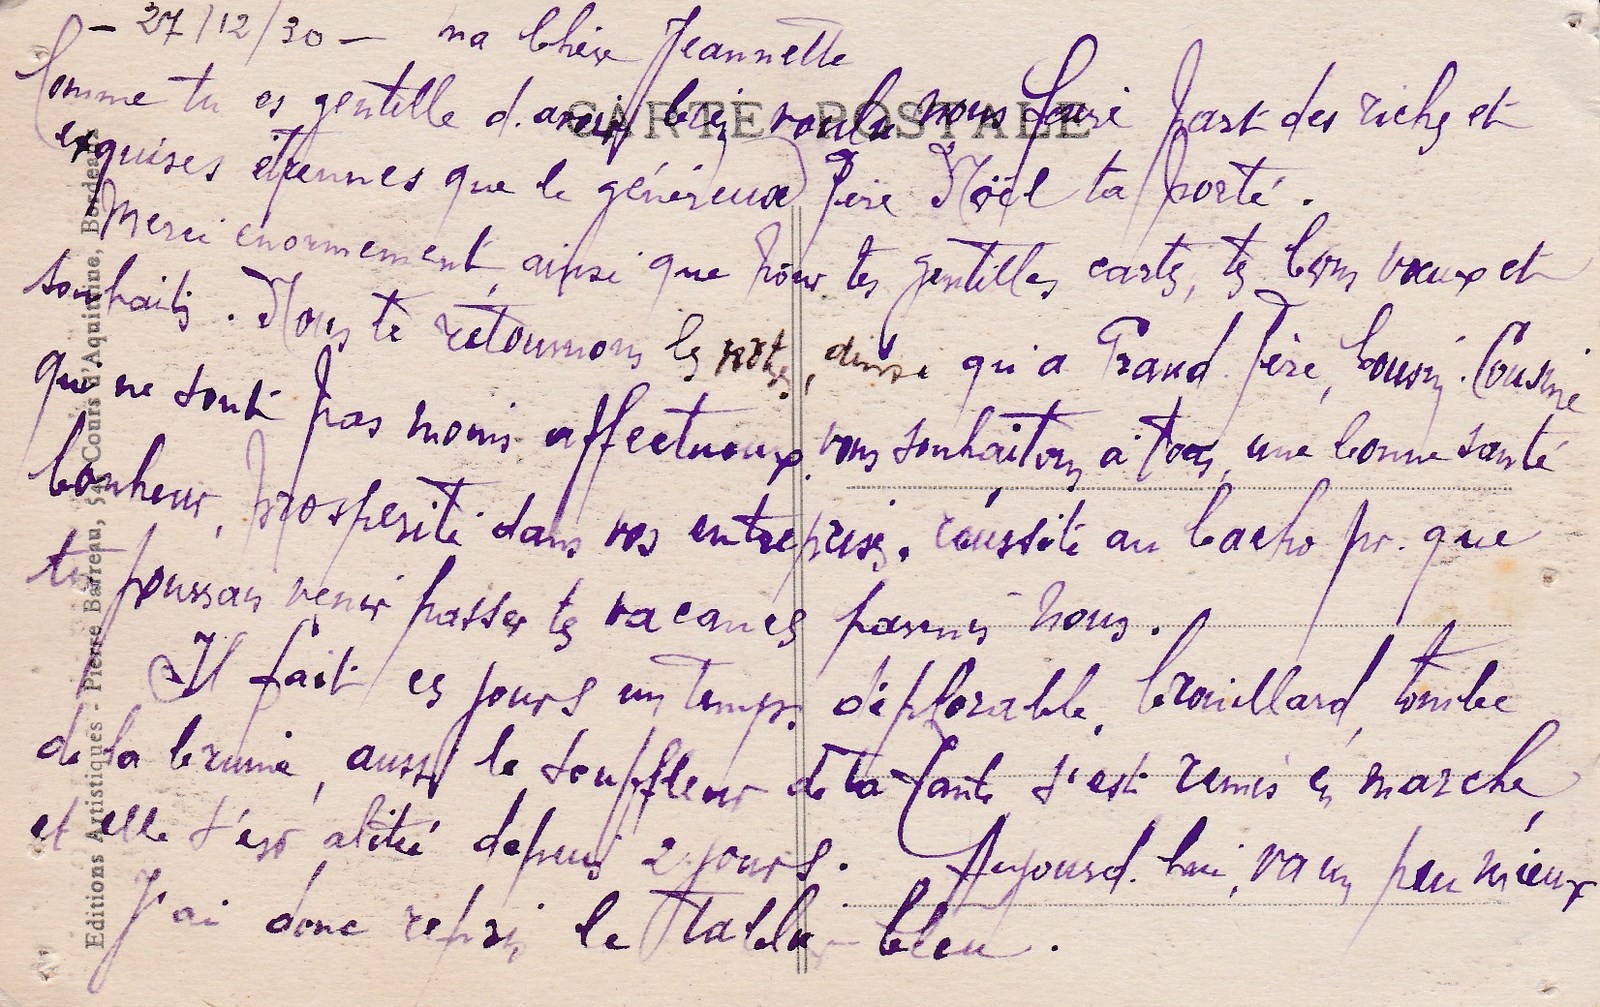 - 27/12/30 - ma Chère Jeannette
Comme tu es gentille d'avoir bien voulu nous faire part des riches et
exquises étrennes que le généreux Père Noël ta porté.
Merci enormement, ainsi que pour tes gentilles cartes, tes bons vœux et
souhaits. Nous te retournons les notres, ainsi qu'a Grand Père, Cousin. Cousine
que ne sont pas moins affectueux, vous souhaitons à tous, une bonne santé
bonheur, prosperité dans vos entreprises, réussite au bacho pr. que
tu puissais venir passer tes vacances parmis nous.
Il fait ces jours un temps déplorable, brouillard, tombe
de la bruine, aussi le souffleur de ta Tante s'est remis en marche,
et elle s'est alitée depuis 2 jours. Aujourd'hui, va un peu mieux
J'ai donc repris le Tablier-bleu.
CARTE POSTALE
Editions Artistiques - Pierre Barreau, 54 Cours d'Aquitaine, Bordeaux